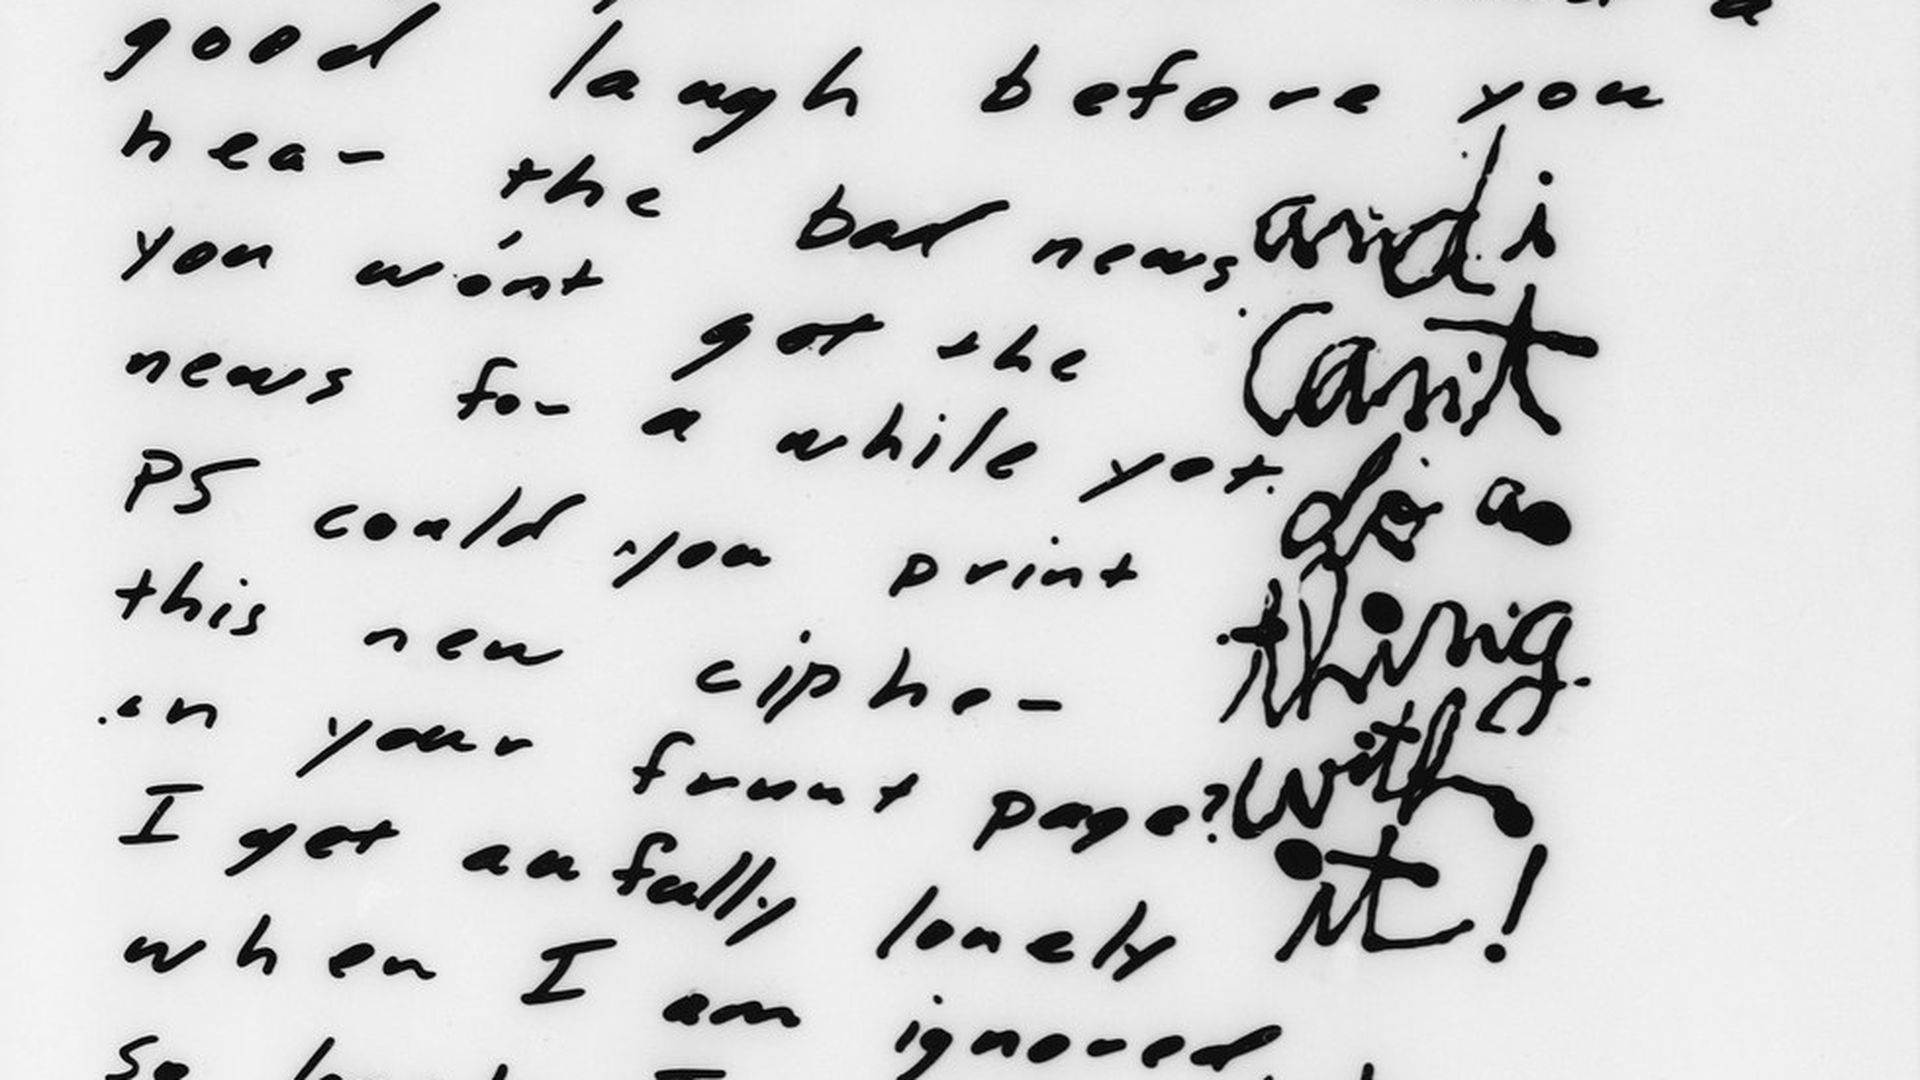 a
good laugh before you
hear the bad news
you won't get the
news for a while yet.
PS could you print
this new cipher
on your frunt page?
I get aufully lonely
when I am ignored
So
and i
can't
do a
thing
with
it!